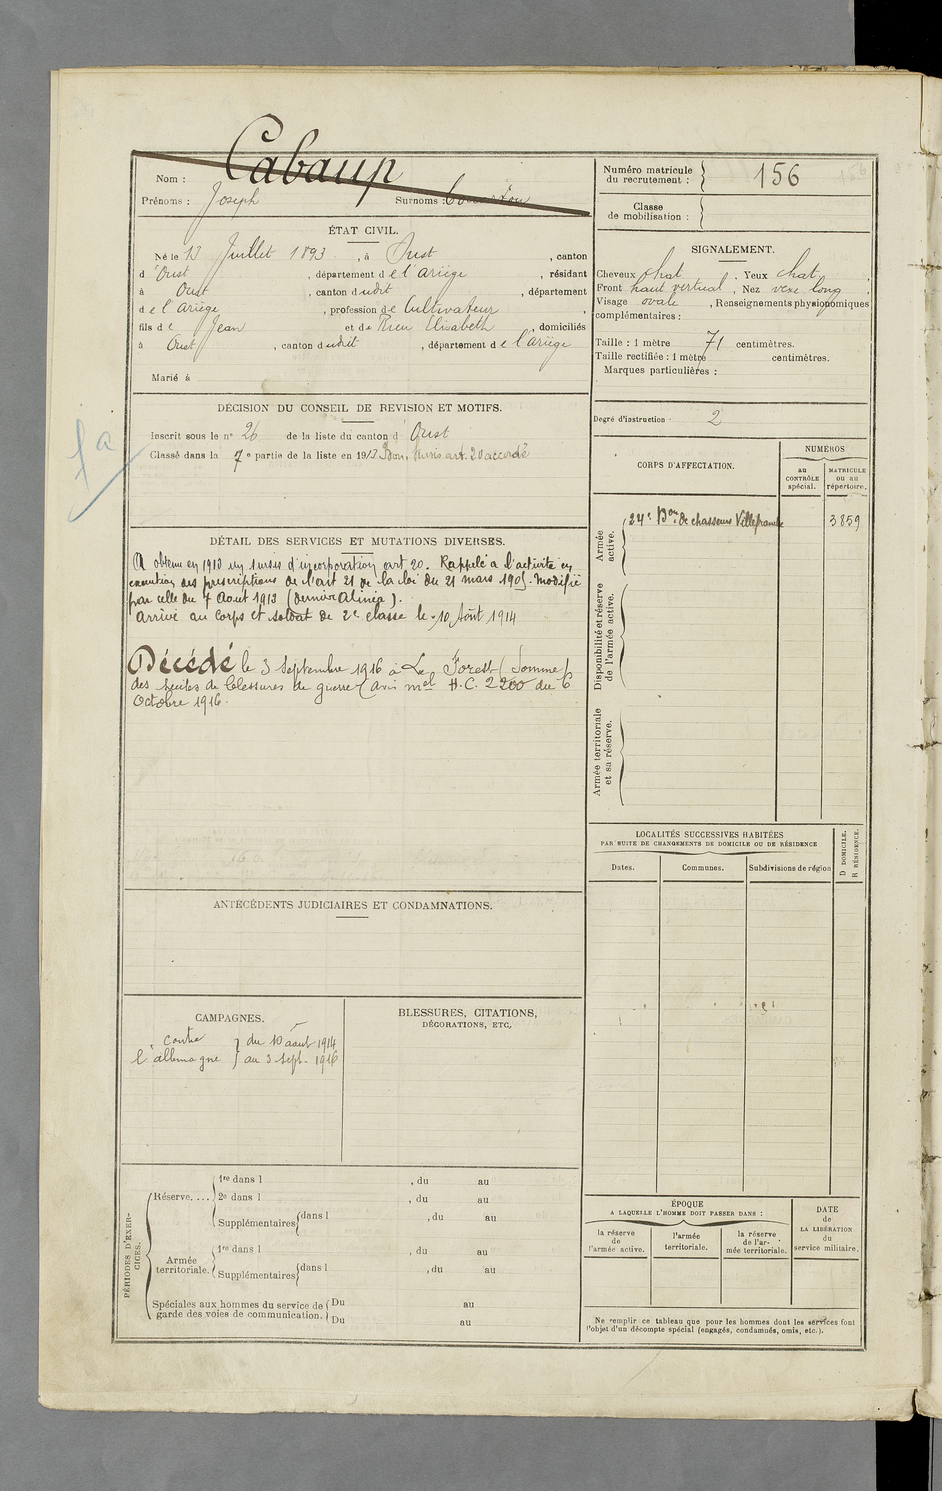 Nom : Cabaup
Prénoms : Joseph Surnoms :
ÉTAT CIVIL.
Né le 13 Juillet 1893, à Oust, canton
d'Oust, département de l'Ariège, résidant
à Oust, canton dudit, département
de l'Ariège, profession de Cultivateur,
fils de Jean et de Rieu Elisabeth, domiciliés
à Oust, canton dudit, département de l'Ariège
Marié à
DÉCISION DU CONSEIL DE REVISION ET MOTIFS.
Inscrit sous le n° 26 de la liste du canton d' Oust
Classé dans la 7e partie de la liste en 1913 Bon, sursis art. 20 accordé
fa
DÉTAIL DES SERVICES ET MUTATIONS DIVERSES.
A obtenu en 1913 un sursis d'incorporation art 20. Rappelé à l'activité en
exécution des prescriptions de l'art 21 de la loi du 21 mars 1905 modifié
par celle du 7 Aout 1913 (dernier Alinéa).
Arrivé au Corps et soldat de 2e classe le 10 Août 1914
Décédé le 3 Septembre 1916 à Le Forest (Somme)
des suites de blessures de guerre (avis mel H.C. 2200 du 6
Octobre 1916.
ANTÉCÉDENTS JUDICIAIRES ET CONDAMNATIONS.
CAMPAGNES.
Contre } du 10 août 1914
l'allemagne } au 3 Sept. 1916
BLESSURES, CITATIONS,
DÉCORATIONS, ETC.
PÉRIODES D'EXERCICES.
Réserve....
1re dans l , du au
2e dans l , du au
Supplémentaires dans l , du au
Armée territoriale.
1re dans l , du au
Supplémentaires dans l , du au
Spéciales aux hommes du service de Du au
garde des voies de communication. Du au
Numéro matricule
du recrutement : 156
Classe
de mobilisation :
SIGNALEMENT.
Cheveux chat, Yeux chat,
Front haut vertical, Nez vexe long,
Visage ovale, Renseignements physionomiques
complémentaires :
Taille : 1 mètre 71 centimètres.
Taille rectifiée : 1 mètre centimètres.
Marques particulières :
Degré d'instruction : 2
CORPS D'AFFECTATION.
NUMÉROS
au CONTRÔLE spécial.
MATRICULE ou au répertoire.
Armée active.
24e Bon de chasseurs Villefranche 3859
Disponibilité et réserve de l'armée active.
Armée territoriale et sa réserve.
LOCALITÉS SUCCESSIVES HABITÉES
PAR SUITE DE CHANGEMENTS DE DOMICILE OU DE RÉSIDENCE
D DOMICILE.
R RÉSIDENCE.
Dates. Communes. Subdivisions de région
ÉPOQUE
A LAQUELLE L'HOMME DOIT PASSER DANS :
la réserve de l'armée active.
l'armée territoriale.
la réserve de l'armée territoriale.
DATE de LA LIBÉRATION du service militaire.
Ne remplir ce tableau que pour les hommes dont les services font
l'objet d'un décompte spécial (engagés, condamnés, omis, etc.).